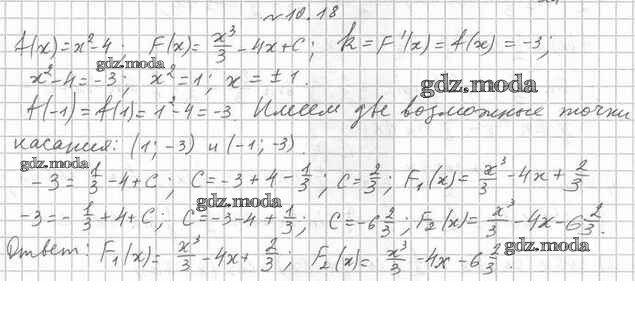 №10.18
f(x)=x²-4; F(x)= x³/3 -4x+C; k=F'(x)=f(x)=-3;
gdz.moda
x²-4=-3; x²=1; x=±1.
gdz.moda
f(-1)=f(1)=1²-4=-3. Имеем две возможные точки
касания: (1;-3) и (-1;-3).
gdz.moda
-3=1/3-4+C; C=-3+4-1/3; C=2/3; F₁(x)= x³/3-4x+2/3
gdz.moda
-3=-1/3+4+C; C=-3-4+1/3; C=-6 2/3; F₂(x)= x³/3-4x-6 2/3.
gdz.moda
Ответ: F₁(x)= x³/3-4x+2/3; F₂(x)= x³/3-4x-6 2/3.